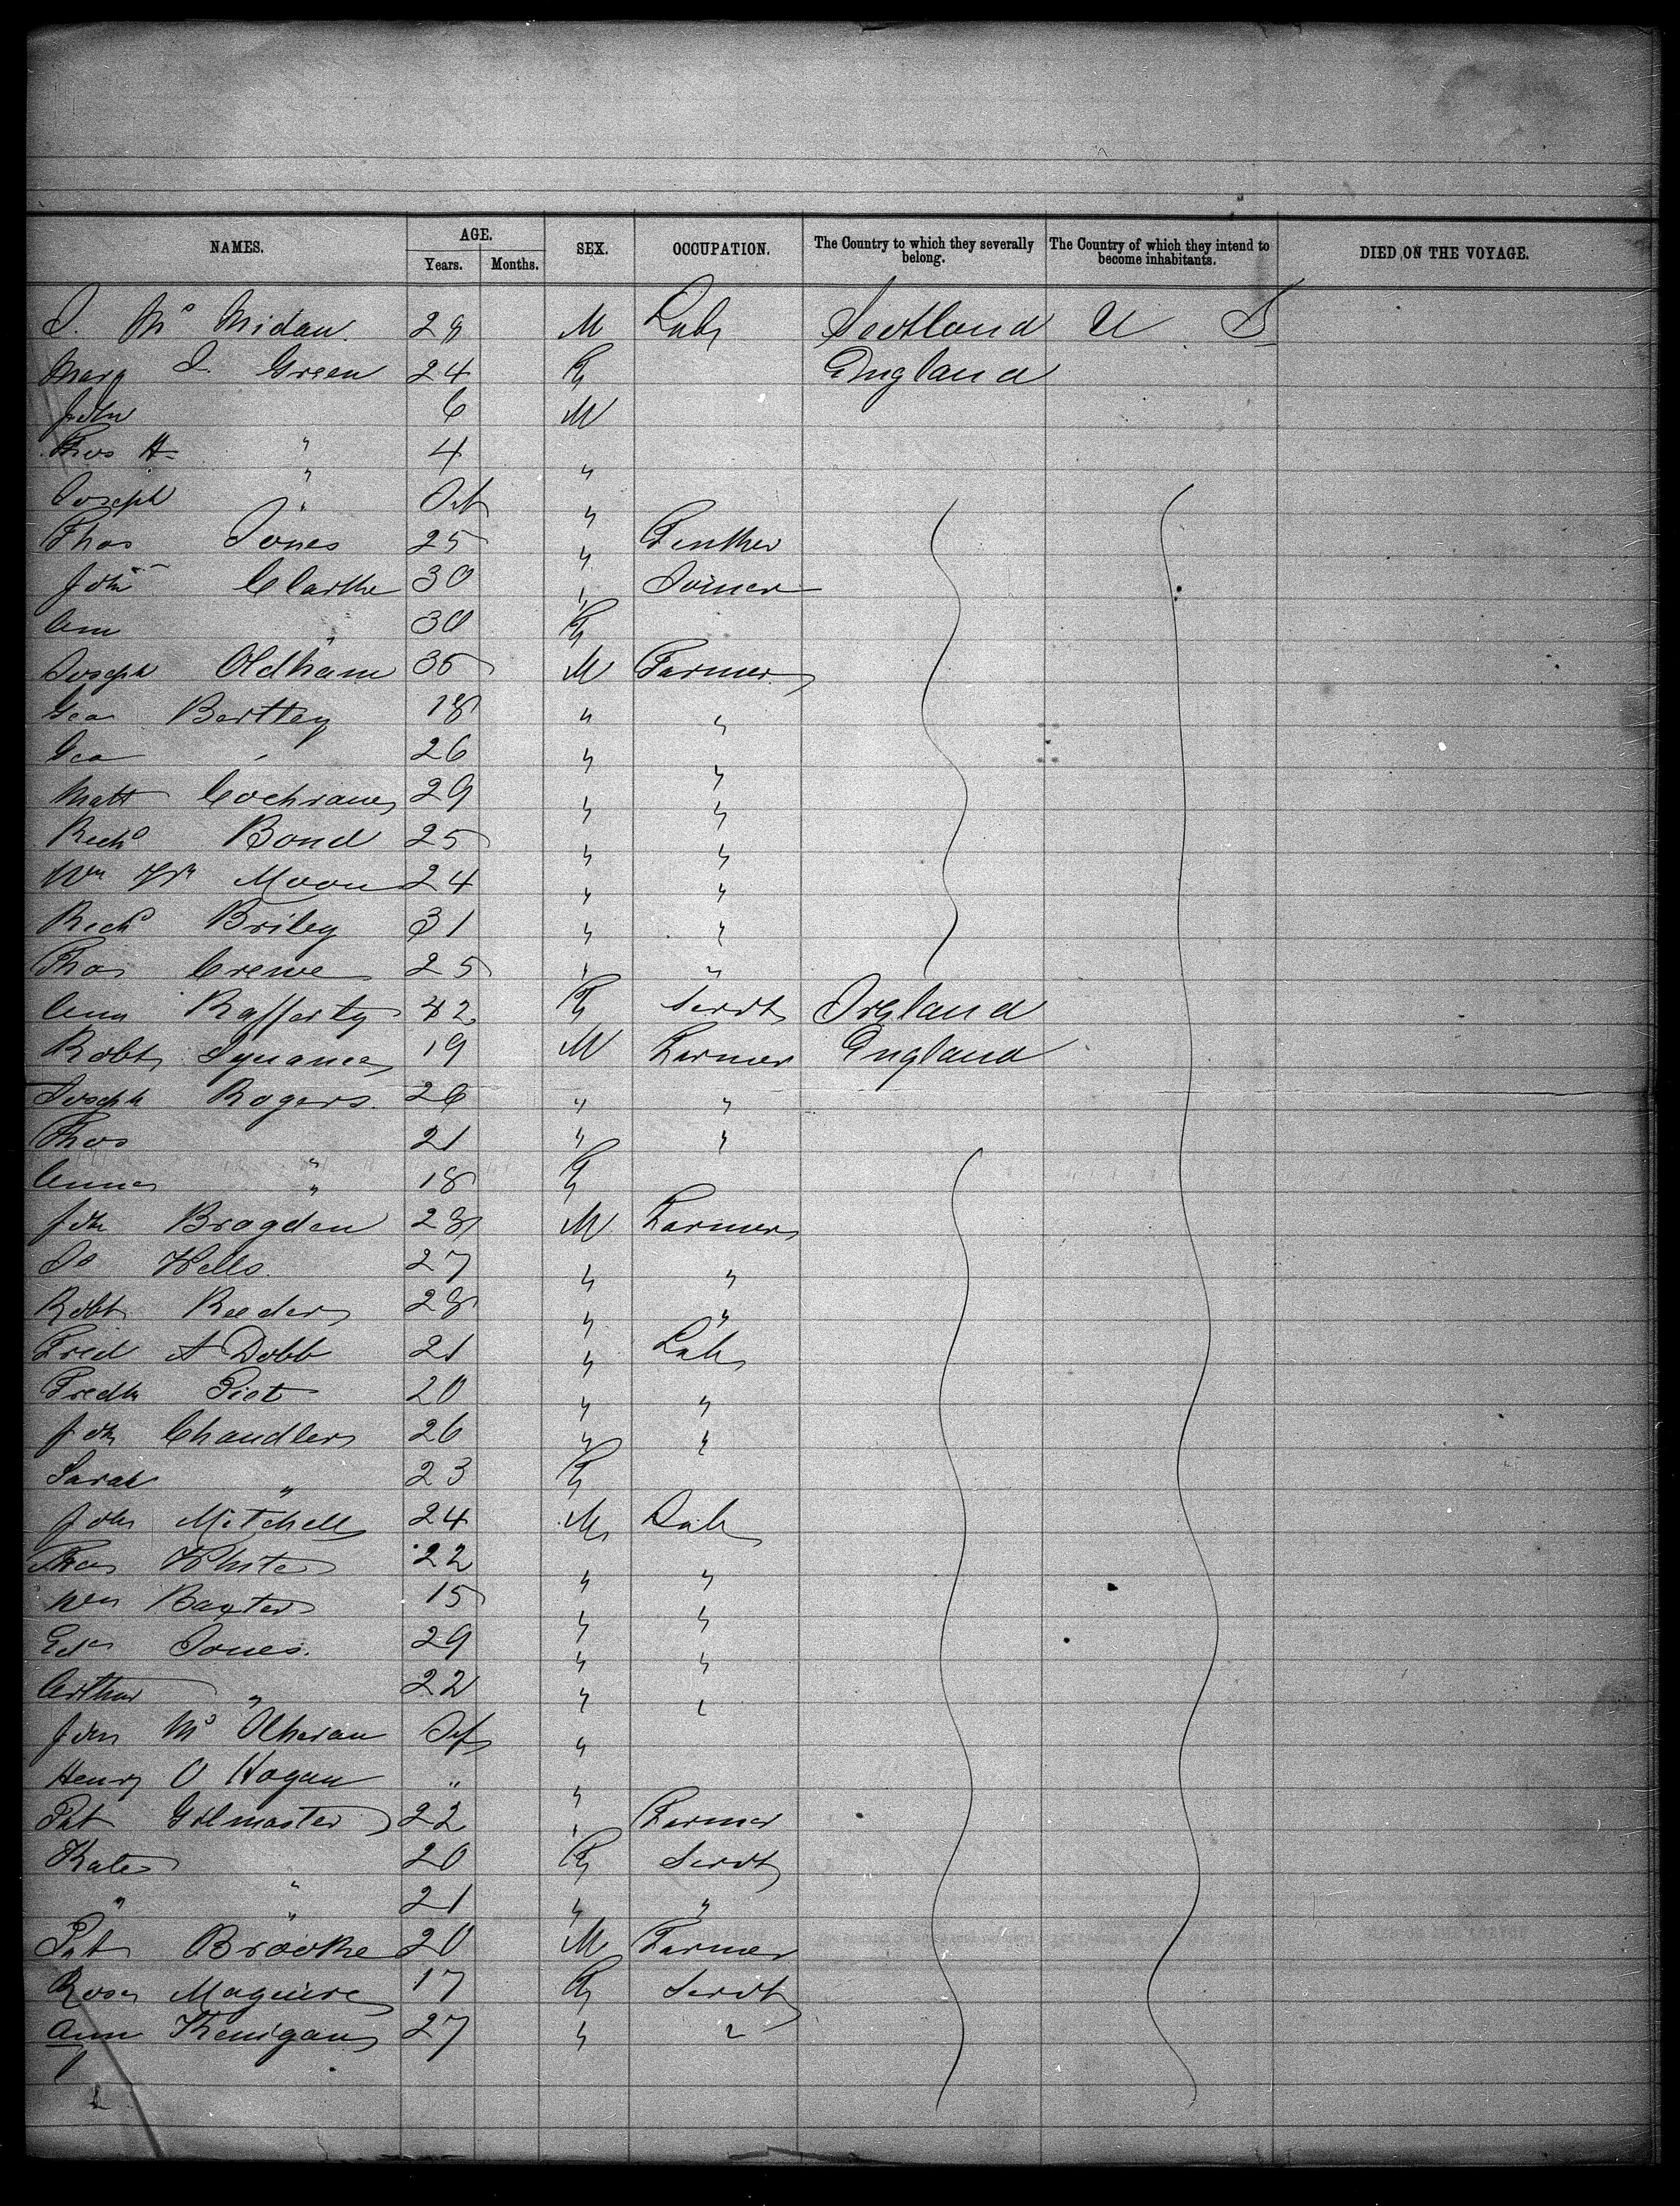 NAMES. AGE. SEX. OCCUPATION. The Country to which they severally belong. The Country of which they intend to become inhabitants. DIED ON THE VOYAGE.
Years. Months.
J. Mc 28 M Lab Scotland U S
Mary J. Green 24 F England
John 6 M
Thos H " 4 "
Joseph " Inft "
Thos Jones 25 "
John Clarke 30 " Joiner
Ann " 30 F
Joseph Oldham 35 M Farmer
Geo Bertley 18 " "
Geo " 26 " "
Matt Cochrane 29 " "
Richd Bond 25 " "
Wm Moon 24 " "
Richd Briley 31 " "
Thos Crewe 25 " "
Ann Rafferty 42 F Servt Ireland
Robt Squance 19 M Farmer England
Joseph Rogers. 26 " "
Thos " 21 " "
Annie " 18 F
John Brogden 28 M Farmer
Jo Wells. 27 " "
Robt Reeder 28 " "
Fred A Dobb 21 " Lab
Fredk 20 " "
John Chandler 26 " "
Sarah " 23 F
John Mitchell 24 M Lab
Thos White 22 " "
Wm Baxter 15 " "
Edw Jones. 29 " "
Arthur " 22 " "
John Mc Inf "
Henry O Hogan " "
Pat Gilmaster 22 " Farmer
Kate " 20 F Servt
" " 21 " "
Pat Brooke 20 M Farmer
Rose Maguire 17 F Servt
Ann Kenigan 27 " "